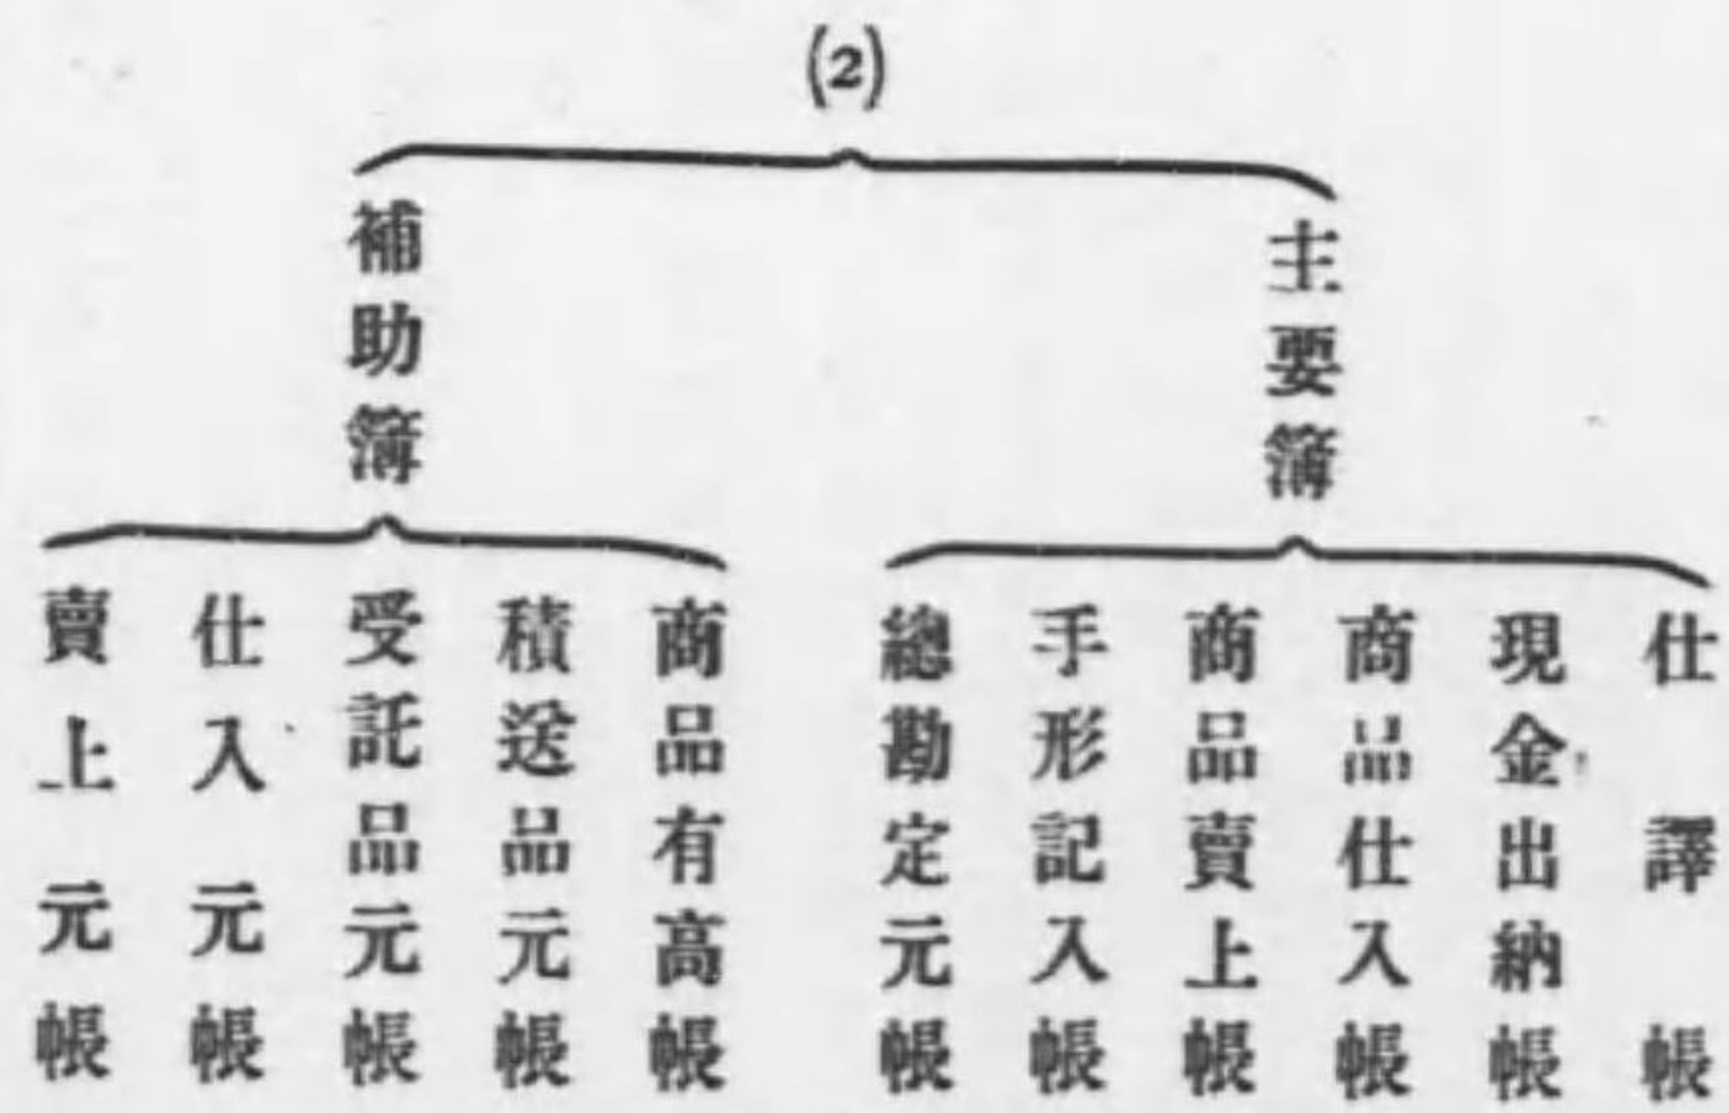 (2)
主要簿
仕譯帳
現金出納帳
商品仕入帳
商品賣上帳
手形記入帳
總勘定元帳
補助簿
商品有高帳
積送品元帳
受託品元帳
仕入元帳
賣上元帳